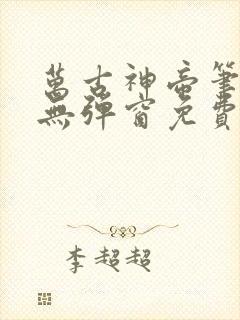 萬古神帝筆
無彈窗免費
李超超